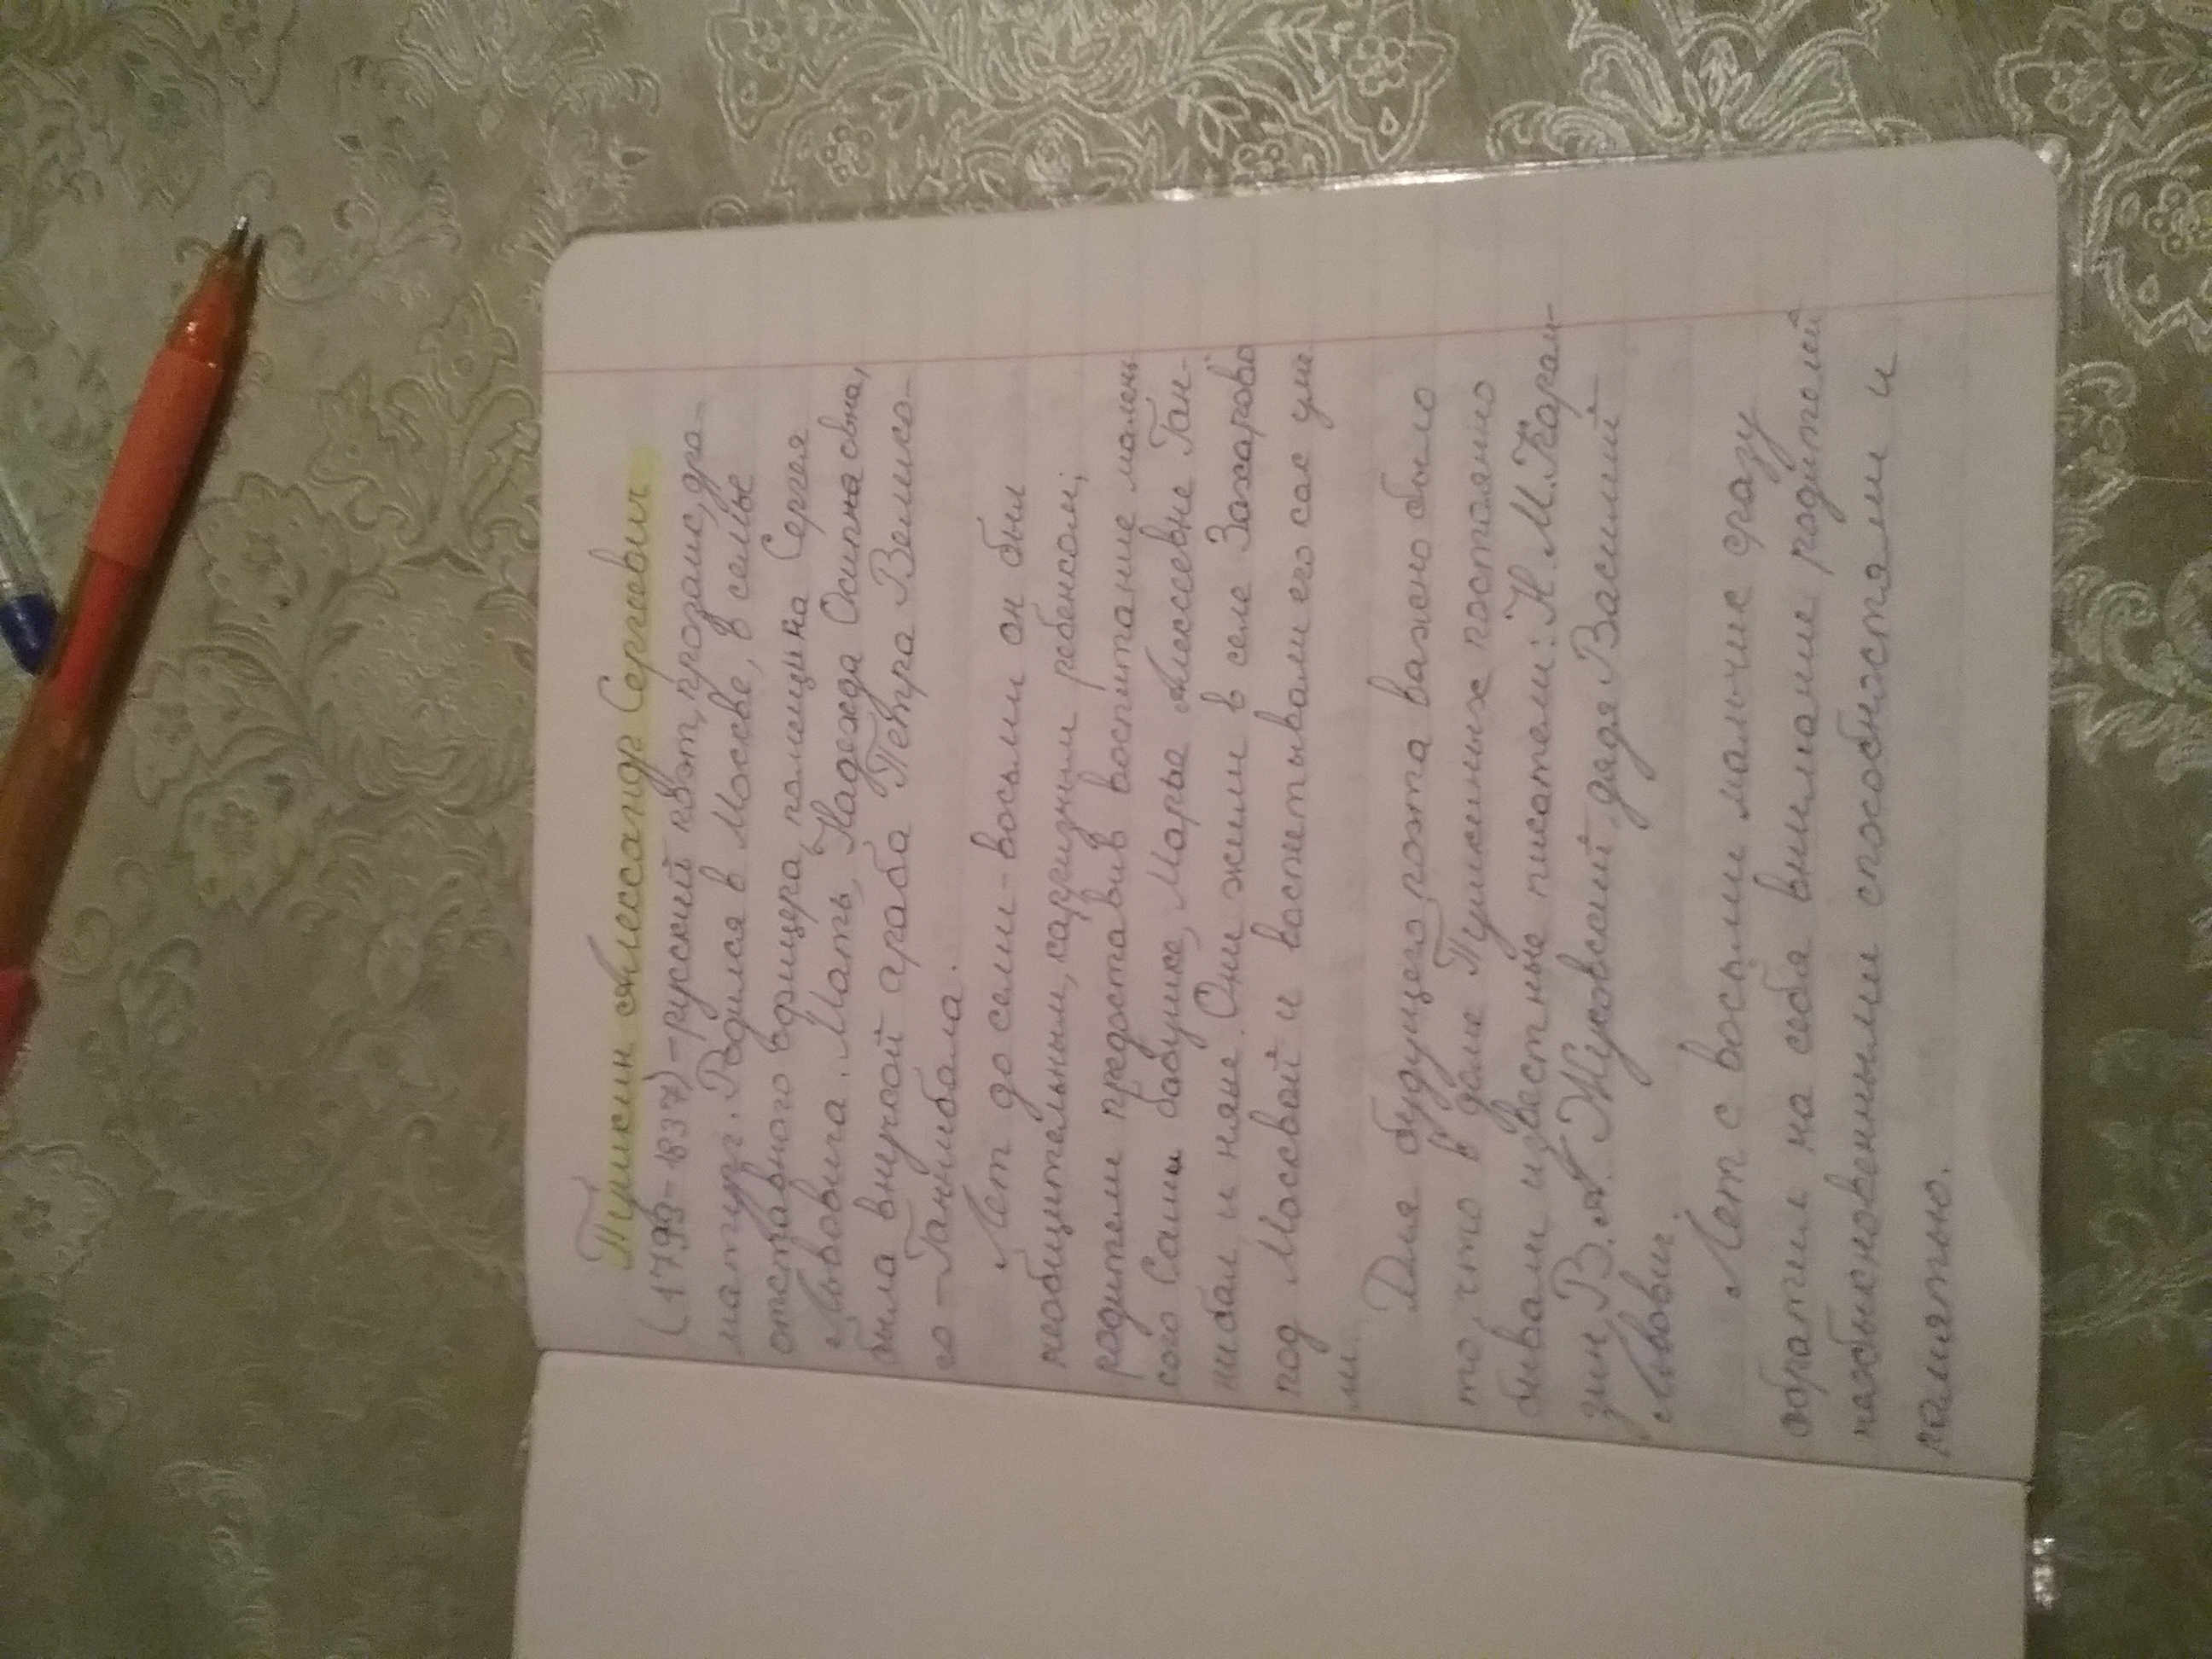 Пушкин Александр Сергеевич
(1799-1837)-русский поэт, прозаик, дра-
матург. Родился в Москве, в семье
отставного офицера, помещика Сергея
Львовича. Мать, Надежда Осипнасвна,
была внучкой араба Петра Велико-
го - Ганнибала.
Лет до семи-восьми он был
необщительным, капризным ребенком;
родители предоставив воспитание малень
кого Саши бабушке, Марье Алексевне Ган-
нибал, и няне. Они жили в селе Захарово
под Москвой и воспитывали его как уме
ли.
Для будущего поэта важно было
то, что в доме Пушкиных постоянно
бывали известные писатели: Н. М. Карам-
зин, В. А. Жуковский, дядя Василий
Львович.
Лет с восьми мальчик сразу
обратил на себя внимание родителей
необыкновенными способностями и
памятью.